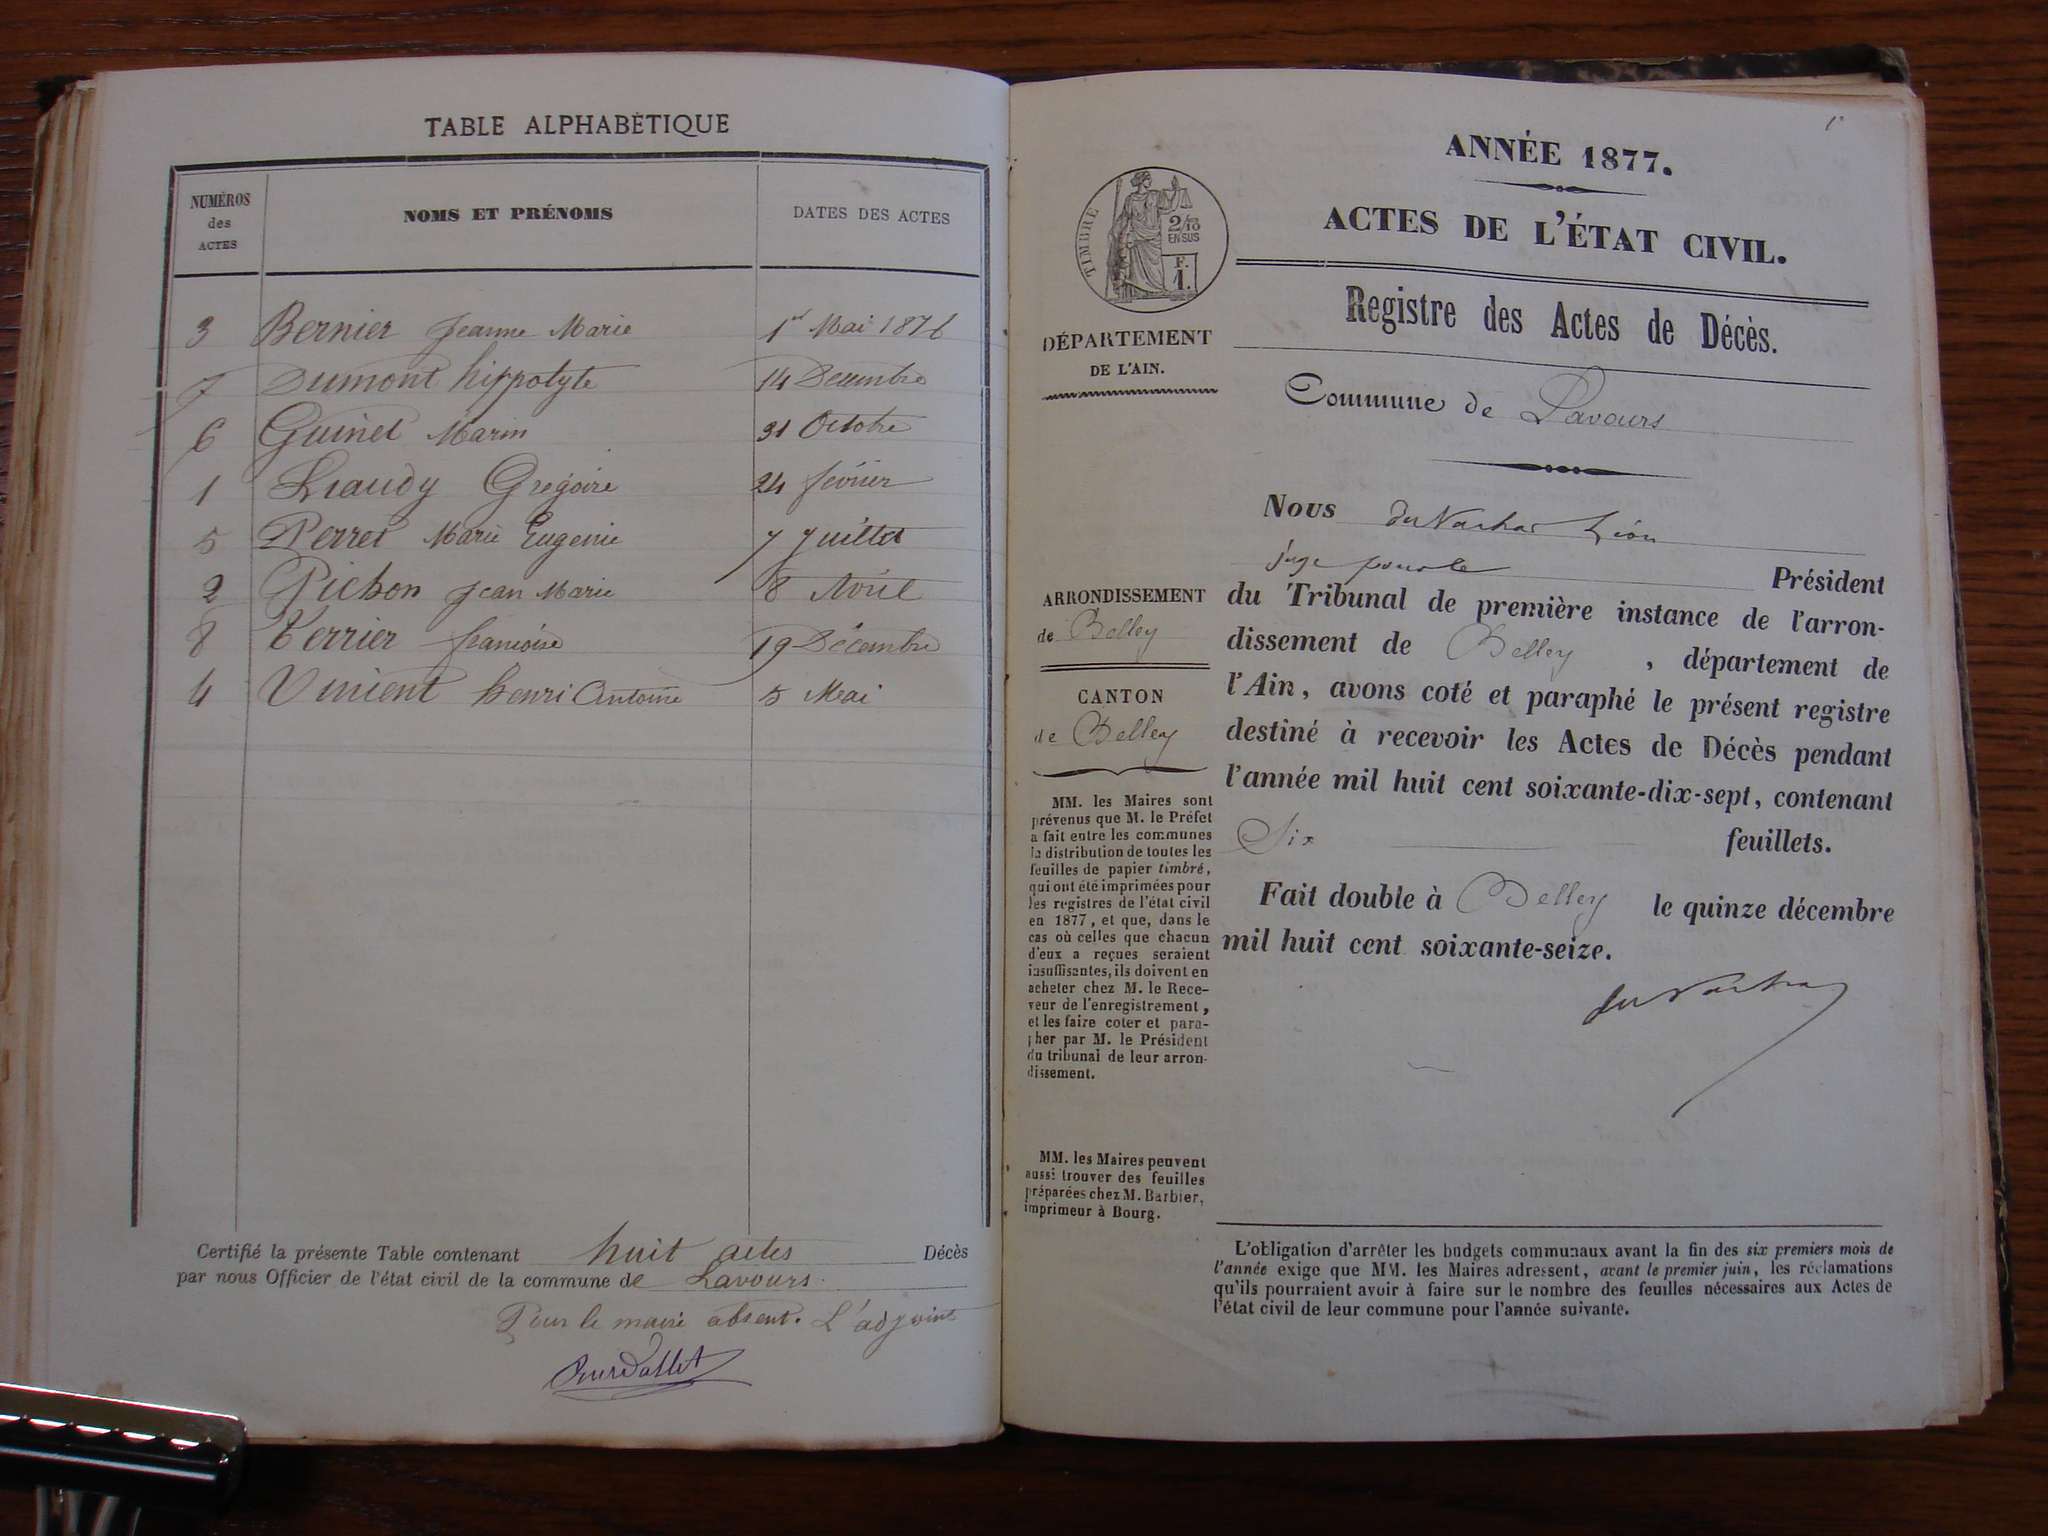 TABLE ALPHABÉTIQUE
NUMÉROS des ACTES NOMS ET PRÉNOMS DATES DES ACTES
3 Bernier Jeanne Marie 1er Mai 1876
7 Dumont hippolyte 14 Decembre
6 Guinet Marin 31 Octobre
1 Liaudy Grégoire 24 février
5 Perret Marie Eugenie 7 Juillet
2 Pichon Jean Marie 8 Avril
8 Verrier françoise 19 Décembre
4 Vincent henri Antoine 5 Mai
Certifié la présente Table contenant huit actes Décès
par nous Officier de l'état civil de la commune de Lavours.
Pour le maire absent. L'adjoint
1e
ANNÉE 1877.
ACTES DE L'ÉTAT CIVIL.
TIMBRE
2/10
EN SUS
F.
1.
Registre des Actes de Décès.
DÉPARTEMENT
DE L'AIN.
Commune de Lavours
ARRONDISSEMENT
de Belley
CANTON
de Belley
MM. les Maires sont
prévenus que M. le Préfet
a fait entre les communes
la distribution de toutes les
feuilles de papier timbré,
qui ont été imprimées pour
les registres de l'état civil
en 1877, et que, dans le
cas où celles que chacun
d'eux a reçues seraient
insuffisantes, ils doivent en
acheter chez M. le Rece-
veur de l'enregistrement,
et les faire coter et para-
pher par M. le Président
du tribunal de leur arron-
dissement.
MM. les Maires peuvent
aussi trouver des feuilles
préparées chez M. Barbier,
imprimeur à Bourg.
Nous Léon
juge pour le Président
du Tribunal de première instance de l'arron-
dissement de Belley, département de
l'Ain, avons coté et paraphé le présent registre
destiné à recevoir les Actes de Décès pendant
l'année mil huit cent soixante-dix-sept, contenant
Six feuillets.
Fait double à Belley le quinze décembre
mil huit cent soixante-seize.
L'obligation d'arrêter les budgets communaux avant la fin des six premiers mois de
l'année exige que MM. les Maires adressent, avant le premier juin, les réclamations
qu'ils pourraient avoir à faire sur le nombre des feuilles nécessaires aux Actes de
l'état civil de leur commune pour l'année suivante.